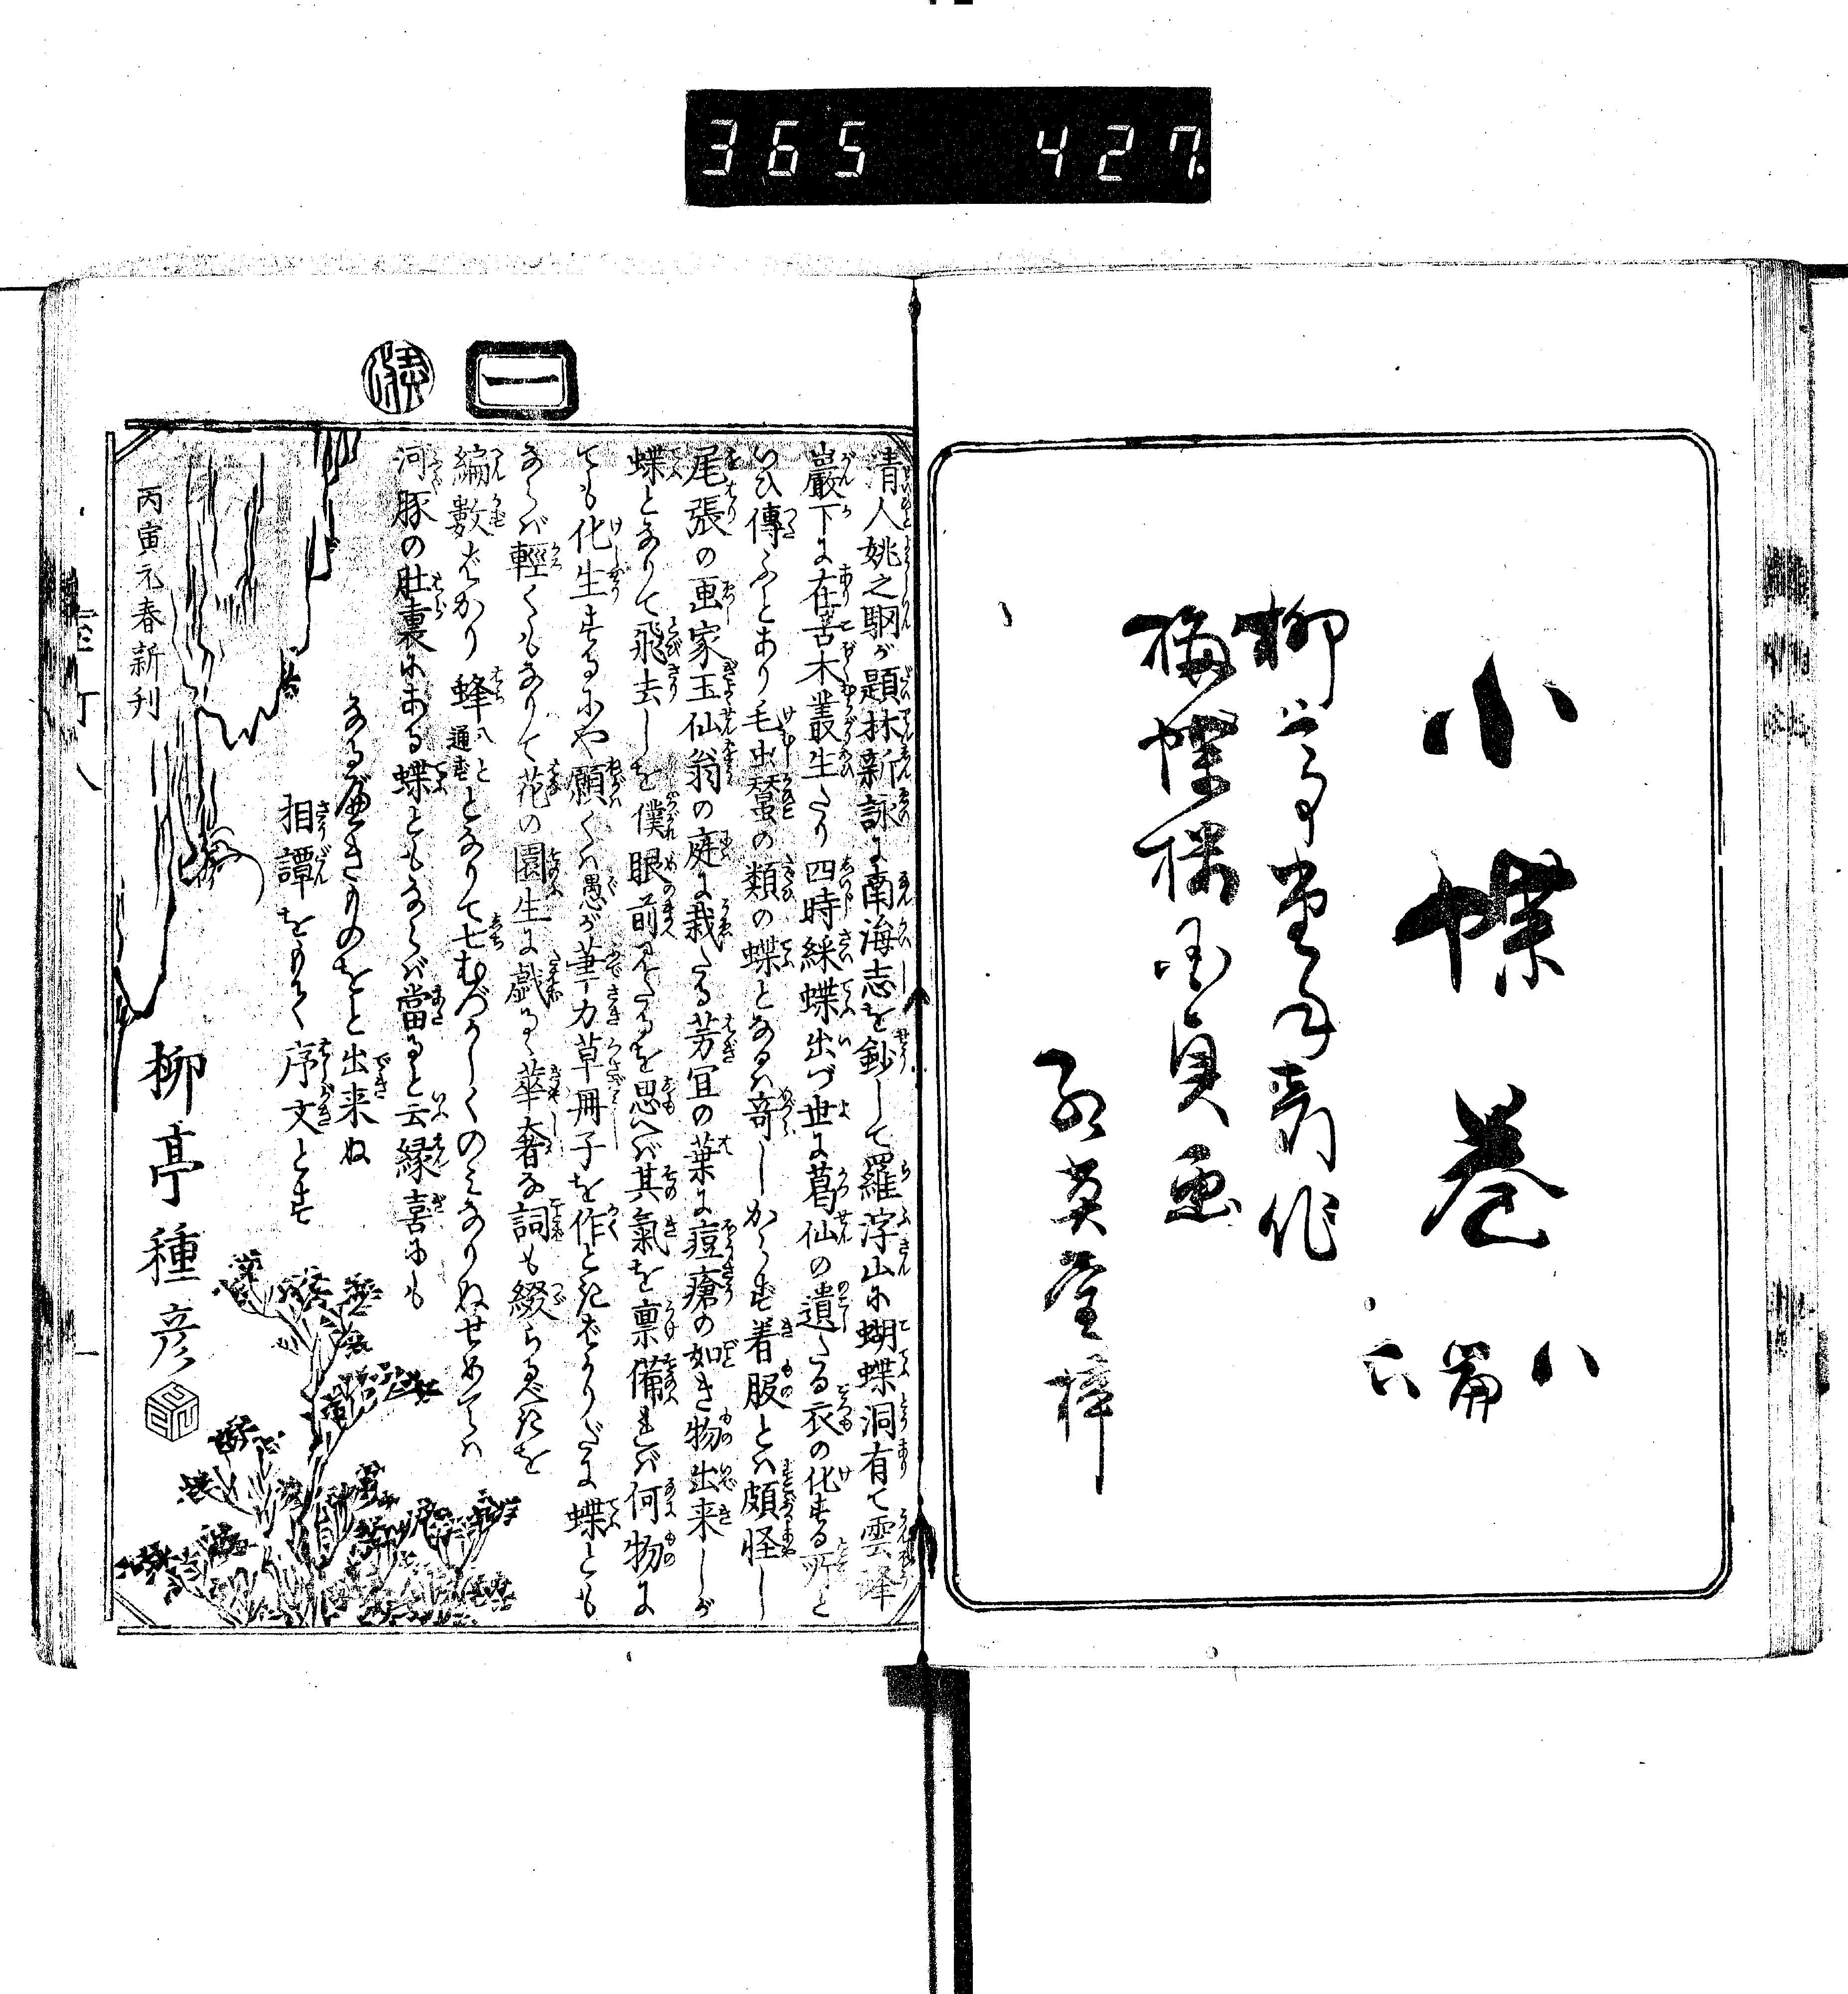 365 427
小蝶巻
八篇
下
柳亭種彦作
梅蝶楼国貞画
紅英堂梓
一
清人姚之駰が題林新詠に南海志を鈔して羅浮山に蝴蝶洞有て雲峰
巖下に在苦木叢生たり四時綵蝶出づ世に葛仙の遺たる衣の化する所と
いひ傳ふとあり毛虫蠶の類の蝶となるハ奇しからず着服とハ頗怪し
尾張の画家玉仙翁の庭に栽たる芳宜の葉に痘瘡の如き物出来しが
蝶となりて飛去しを僕眼前見たるを思へバ其氣を禀備れバ何物に
ても化生するにや願くハ愚が筆力草冊子を作ときばかりだに蝶とも
ならバ輕くもなりて花の園生に戯るゝ華奢な詞も綴らるべきを
編數ばかり蜂八と通ずとなりて七むづかしくのみなりぬせめてハ
河豚の肚裏にある蝶ともならバ當ると云縁喜にも
なるべきものをと出来ぬ
相譚をもて序文とす
丙寅元春新刊
柳亭種彦